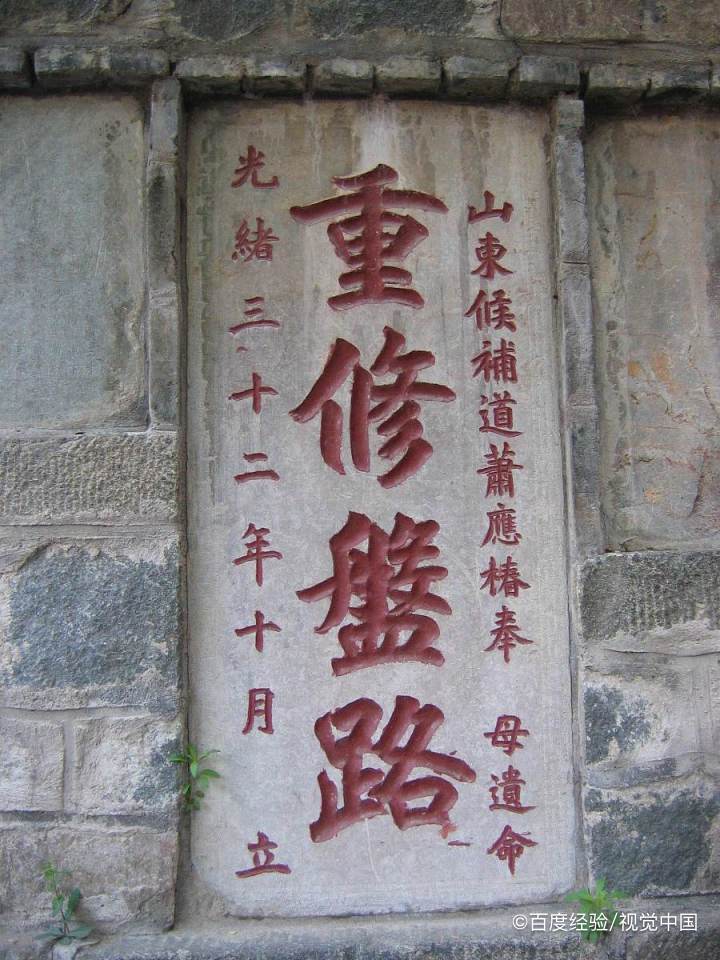 山東候補道蕭應椿奉 母遺命
重修盤路
光緒三十二年十月 立
©百度经验/视觉中国